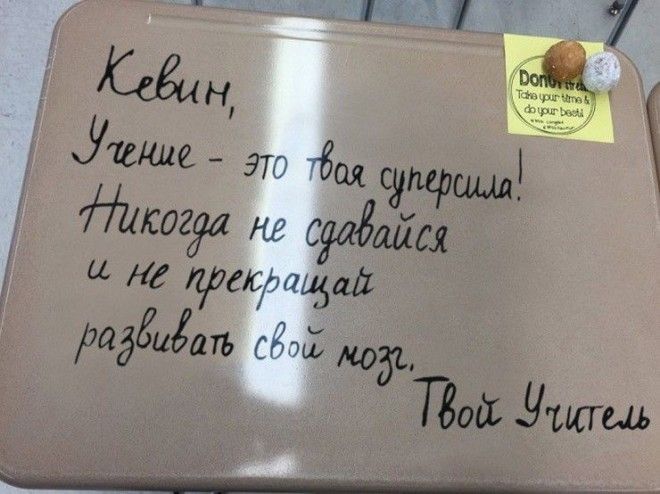 Кевин,
Учение - это твоя суперсила!
Никогда не сдавайся
и не прекращай
развивать свой мозг.
Твой Учитель
Donut
Take your time &
do your best!